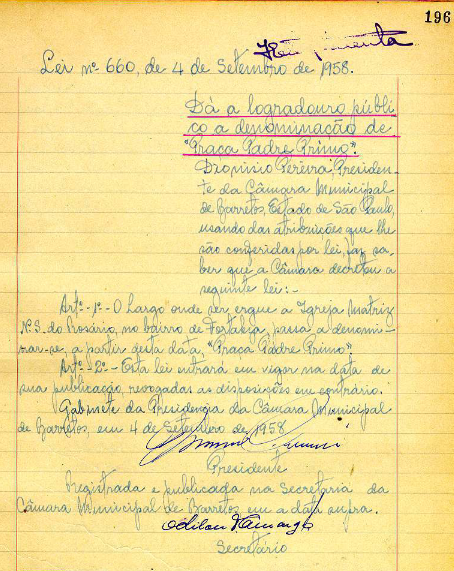 196
Lei nº 660, de 4 de Setembro de 1958.
Dá a logradouro públi-
co a denominação de
"Praça Padre Primo".
Dionisio Pereira, Presiden-
te da Câmara Municipal
de Barretos, Estado de São Paulo,
usando das atribuições que lhe
são conferidas por lei, faz sa-
ber que a Câmara decretou a
seguinte lei:-
Artº-1º- O largo onde se ergue a Igreja Matriz
N.S. do Rosário, no bairro de Fortaleza, passa a denomi-
nar-se, a partir desta data, "Praça Padre Primo".
Artº-2º- Esta lei entrará em vigor na data de
sua publicação, revogadas as disposições em contrário.
Gabinete da Presidencia da Câmara Municipal
de Barretos, em 4 de Setembro de 1958
Presidente
Registrada e publicada na Secretaria da
Câmara Municipal de Barretos em a data supra.
Odilon Camargo
Secretário